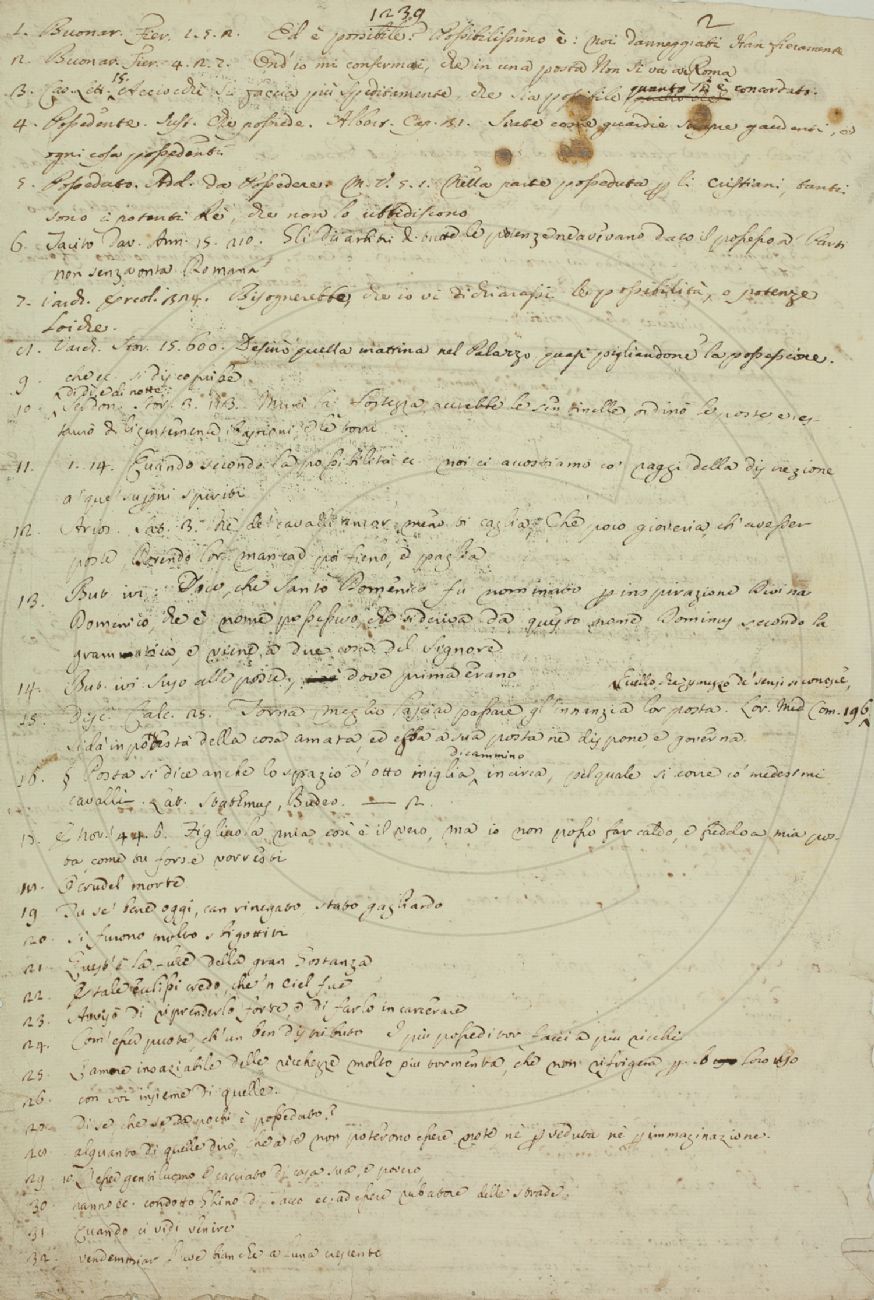 1239
2
1. Buonar. Fier. 1. 5. 2. Ed è possibile? Possibilissimo è: noi danneggiati stan fieramente
2. Buonar. Fier. 4. 2. 7. Ond' io mi confermai, che in una posta Non si va a Roma
3. Cas. Lett. 15. Acciocchè si faccia più speditamente, che sia possibile quanto si è concordato.
4. Possedente. Sust. Che possiede. Albert. Cap. 181. Siate come guardie gaudenti, e
ogni cosa possedenti
5. Posseduto. Add. da Possedere. M. V. 5. 1. Nella parte posseduta p li cristiani, tanti
sono i potenti Re, che non lo ubbidiscono
6. Tacito Dav. Ann. 15. 210. Gli di arbitri di tutte le potenze ne avevano dato il possesso a Parti
non senza onta Romana
7. Varch. Ercol. 1324. Bisognerebbe, che io vi dichiarassi le possibilità, o potenze
loiche.
8. Varch. Stor. 15. 600. Desinò quella mattina nel Palazzo, quasi pigliandone la possessione.
9. che ec. si discoprisse
10. di dì, e di notte Stor. 3. 113. Munì la fortezza, accrebbe le sentinelle, ordinò le poste e res-
taurò diligentemente i bastioni, e le torri
11. 1. 14. Quando secondo la possibilità ec. noi ci accostiamo co' raggi della discrezione
a que' sustoni spiriti
12. Arios. Sat. 3. Nè de' cavalli ancor meno vi caglia, Che poco gioveria, ch' avesser
poste, Dovendo lor mancar poi fieno, e paglia
13. But. ivi: Dico, che Santo Domenico fu nominato p inspirazione Divina
Domenico, che è nome possessivo, che si deriva da questo nome Dominus secondo la
grammatica, e viene a dire cosa del Signore
14. But. ivi. Suso alle poste, dove prima erano
Quello, che p mezzo de' sensi si conosce,
15. Disc. Calc. 25. Torna meglio lasciar passare gl' Innanzi a lor posta. Lor. Med. Com. 196.
si dà in potestà della cosa amata, ed essa a sua posta ne dispone e governa
16. § Posta si dice anche lo spazio d' otto miglia di cammino in circa, pel quale si corre co' medesimi
cavalli. Lat. Stathmus, Budeo. — 2.
17. E nov. 44. 6. Figliuola mia così è il vero, ma io non posso far caldo, e freddo a mia pos-
ta, come tu forse vorresti
18. O crudel morte
19. Tu se' bene oggi, can rinegato, stato gagliardo
20. si furono molto sbigottiti
21. Quest' è la luce della gran Gostanza
22. E tale eclissi credo, che 'n ciel fue
23. Avvisò di riprenderlo forte, e di farlo incarcerare
24. Com' esser puote, ch' un ben distributo I più posseditor facci a più ricchi
25. L' amore insaziabile delle ricchezze molto più tormenta, che non rifrigera p lo loro uso
26. con voi insieme di quelle.
27. di se, che se da pochi è posseduto?
28. alquanto di quelle due, che a te non poterono essere note nè p veduta nè p immaginazione.
29. io D' esser gentiluomo E cacciato di casa sua, e povero
30. vanno ec. condotto Ghino di Tacco ec. ad essere rubatore delle strade
31. Quando ci vidi venire
32. vendemmiar l' uve bianche a luna crescente